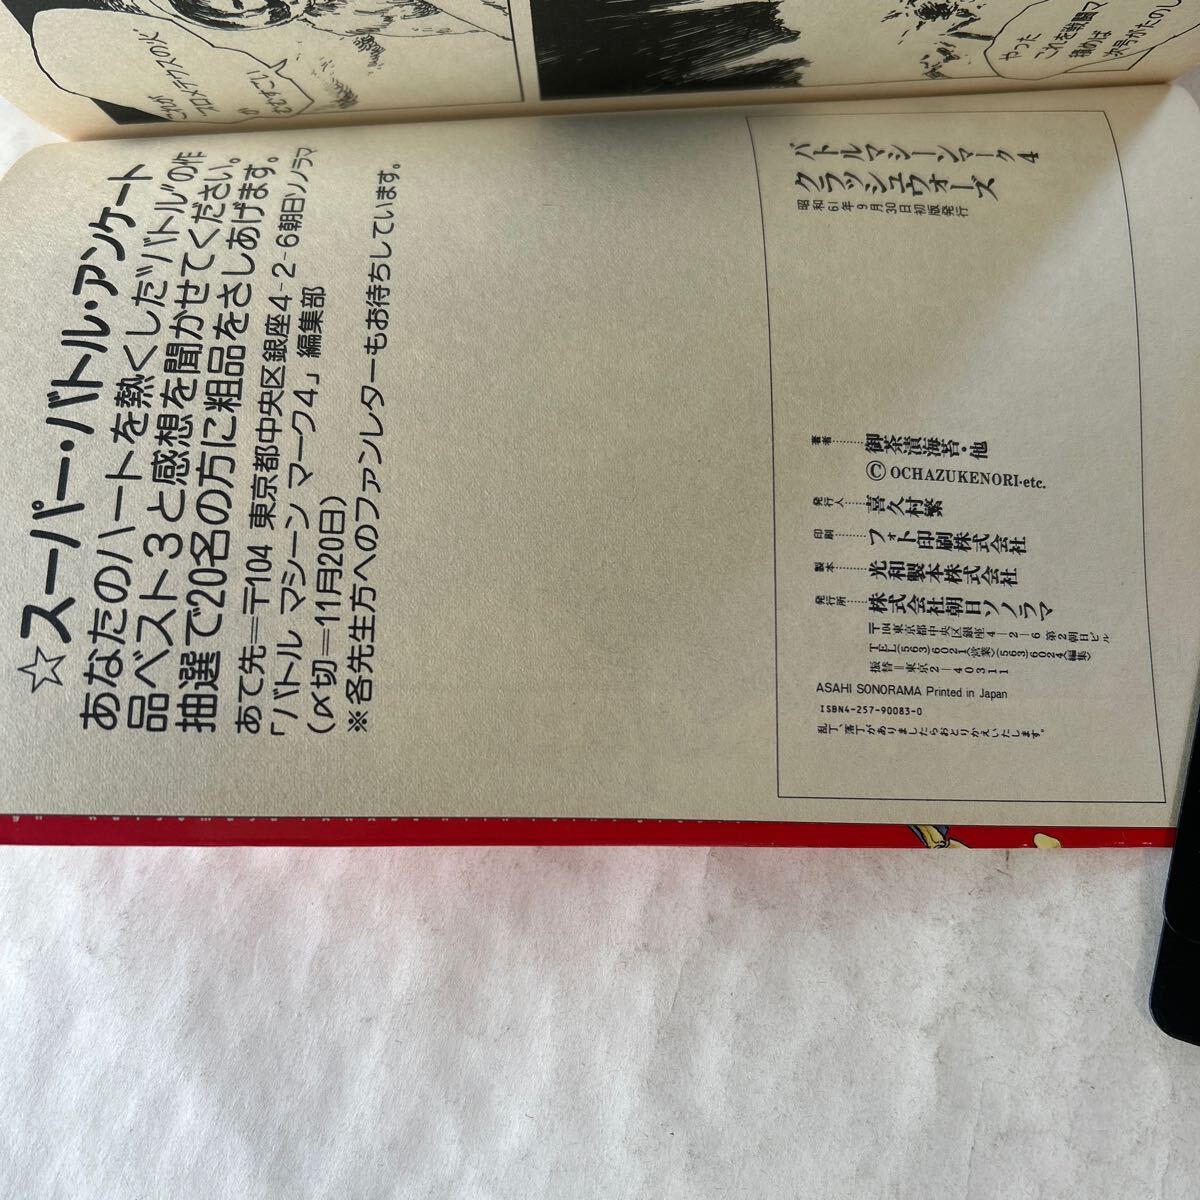 ☆スーパー・バトル・アンケート
あなたのハートを熱くした"バトル"の作
品ベスト3と感想を聞かせてください。
抽選で20名の方に粗品をさしあげます。
あて先=〒104 東京都中央区銀座4-2-6朝日ソノラマ
「バトル マシーン マーク4」編集部
(〆切=11月20日)
※各先生方へのファンレターもお待ちしています。
バトルマシーンマーク4
クラッシュウォーズ
昭和61年9月30日初版発行
著者……御茶漬海苔・他
©OCHAZUKENORI・etc.
発行人……喜久村繁
印刷……フォト印刷株式会社
製本……光和製本株式会社
発行所……株式会社朝日ソノラマ
〒104 東京都中央区銀座4―2―6 第2朝日ビル
TEL(563)6021〈営業〉(563)6024〈編集〉
振替=東京2―40311
ASAHI SONORAMA Printed in Japan
ISBN4-257-90083-0
乱丁、落丁がありましたらおとりかえいたします。
やった
これを戦闘マ
極めりは
次号がたのし